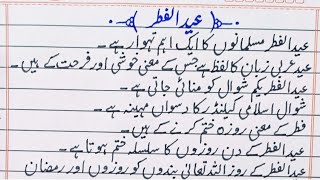 عیدالفطر
عیدالفطر مسلمانوں کا ایک اہم تہوار ہے۔
عید عربی زبان کا لفظ ہے جس کے معنی خوشی اور فرحت کے ہیں۔
عیدالفطر یکم شوال کو منائی جاتی ہے۔
شوال اسلامی کیلنڈر کا دسواں مہینہ ہے۔
فطر کے معنی روزہ ختم کرنے کے ہیں۔
عیدالفطر کے دن روزوں کا سلسلہ ختم ہوتا ہے۔
عیدالفطر کے روز اللہ تعالیٰ بندوں کو روزوں اور رمضان